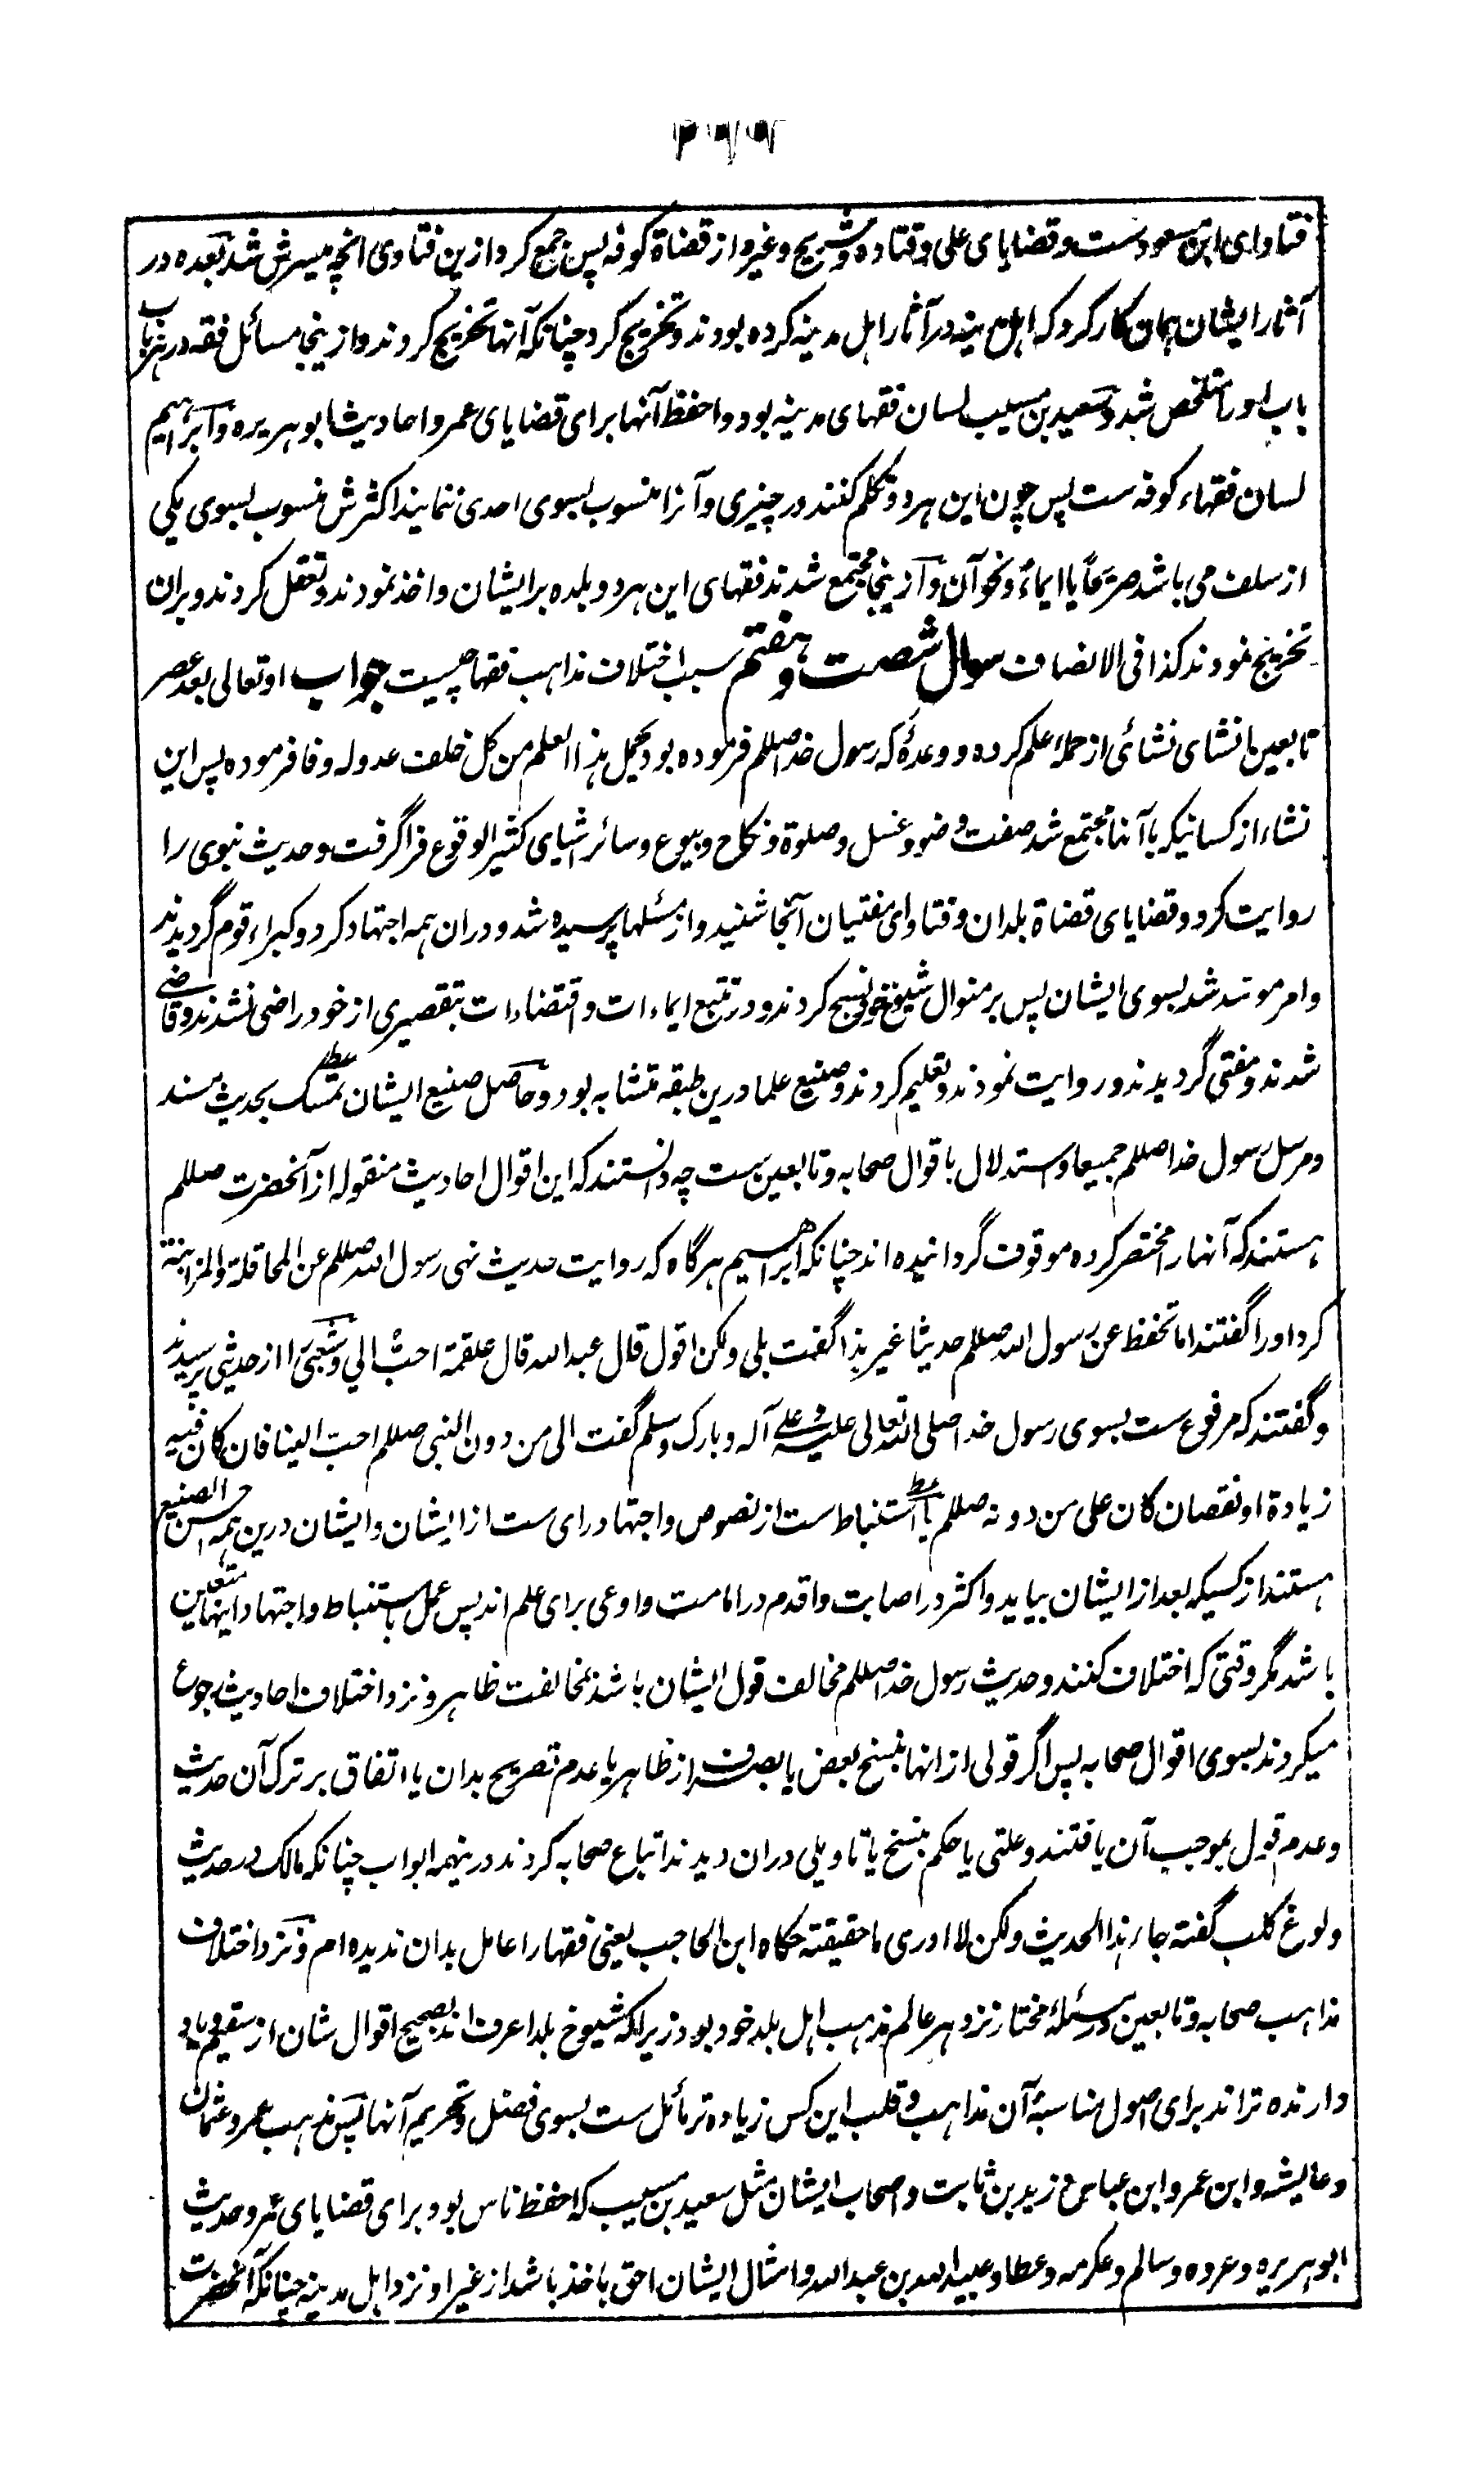 فتاوای ابن مسعود ست و قضایای علی و قتاده و شریح و غیره از قضاة کوفه پس جمع کرد ازین فتاوی انچه میسرش شد بعده در
آثار ایشان همان کار کرد که اهل مدینه در آثار اهل مدینه کرده بودند و تخریج کرد چنانکه آنها تخریج کردند و ازینجا مسائل فقه در هر باب
باب او را متلخص شد و سعید بن مسیب لسان فقهای مدینه بود و احفظ آنها برای قضایای عمر و احادیث ابو هریره و ابراهیم
لسان فقهاء کوفه ست پس چون این هر دو تکلم کنند در چیزی و آنرا منسوب بسوی احدی ننمایند اکثرش منسوب بسوی یکی
از سلف می باشد صریحاً یا ایماءً و نحو آن و ازینجا مجتمع شدند فقهای این هر دو بلده بر ایشان و اخذ نمودند و تعقل کردند و بران
تخریج نمودند کذا فی الانصاف سوال شصت و هفتم سبب اختلاف مذاهب فقها چیست جواب او تعالی بعد عصر
تابعین انشای نشائی از حملۀ علم کرده و وعدۀ که رسول خدا صللم فرموده بود یحمل هذا العلم من کل خلف عدوله وفا فرموده پس این
نشاء از کسانیکه با آنها مجتمع شد صفت وضو و غسل و صلوة و نکاح و بیوع و سائر اشیای کثیر الوقوع فرا گرفت و حدیث نبوی را
روایت کرد و قضایای قضاة بلدان و فتاوای مفتیان آنجا شنید و از مسئلها پرسیده شد و دران همه اجتهاد کرد و کبراء قوم گردیدند
و امر موسد شد بسوی ایشان پس بر منوال شیوخ خود نسج کردند و در تتبع ایماءات و اقتضاءات بتقصیری از خود راضی نشدند و قاضی
شدند و مفتی گردیدند و روایت نمودند و تعلیم کردند و صنیع علما درین طبقه متشابه بود و حاصل صنیع ایشان تمسک بحدیث مسند
و مرسل رسول خدا صللم جمیعا و استدلال باقوال صحابه و تابعین ست چه دانستند که این اقوال احادیث منقوله از آنحضرت صللم
هستند که آنها را مختصر کرده موقوف گردانیده اند چنانکه ابراهیم هرگاه که روایت حدیث نهی رسول الله صللم عن المحاقلة والمزابنة
کرد او را گفتند اما تحفظ عن رسول الله صللم حدیثا غیر هذا گفت بلی ولکن اقول قال عبد الله قال علقمة احبّ الی و شعبی را از حدیثی پرسیدند
و گفتند که مرفوع ست بسوی رسول خدا صلی الله تعالی علیه و علی آله و بارک وسلم گفت الی من دون النبی صللم احب الینا فان کان فیه
زیادة او نقصان کان علی من دونه صللم یا استنباط ست از نصوص و اجتهاد رای ست از ایشان و ایشان درین همه احسن الصنیع
هستند از کسیکه بعد از ایشان بیاید و اکثر در اصابت و اقدم در امامت و اوعی برای علم اند پس عمل باستنباط و اجتهاد اینها متعین
باشد مگر وقتی که اختلاف کنند و حدیث رسول خدا صللم مخالف قول ایشان باشد بمخالفت ظاهر و نزد اختلاف احادیث رجوع
میکردند بسوی اقوال صحابه پس اگر قولی از انها بنسخ بعض یا بصرف از ظاهر یا عدم تصریح بدان یا اتفاق بر ترک آن حدیث
و عدم قول بموجب آن یافتند و علتی یا حکم بنسخ یا تاویلی دران دیدند اتباع صحابه کردند درینهمه ابواب چنانکه مالک در حدیث
ولوغ کلب گفته جاء هذا الحدیث ولکن لا ادری ما حقیقته حکاه ابن الحاجب یعنی فقها را عامل بدان ندیده ام و نزد اختلاف
مذاهب صحابه و تابعین در مسئله مختار نزد هر عالم مذهب اهل بلد خود بود زیراکه شیوخ بلد اعرف اند بصحیح اقوال شان از سقیم و یاد
دارنده تر اند برای اصول مناسبۀ آن مذاهب و قلب این کس زیاده تر مائل ست بسوی فضل و تحریم آنها پس مذهب عمر و عثمان
و عایشه و ابن عمر و ابن عباس و زید بن ثابت و اصحاب ایشان مثل سعید بن مسیب که احفظ ناس بود برای قضایای عمر و حدیث
ابوهریره و عروه و سالم و عکرمه و عطا و عبید الله بن عبد الله و امثال ایشان احق باخذ باشد از غیر او نزد اهل مدینه چنانکه آنحضرت